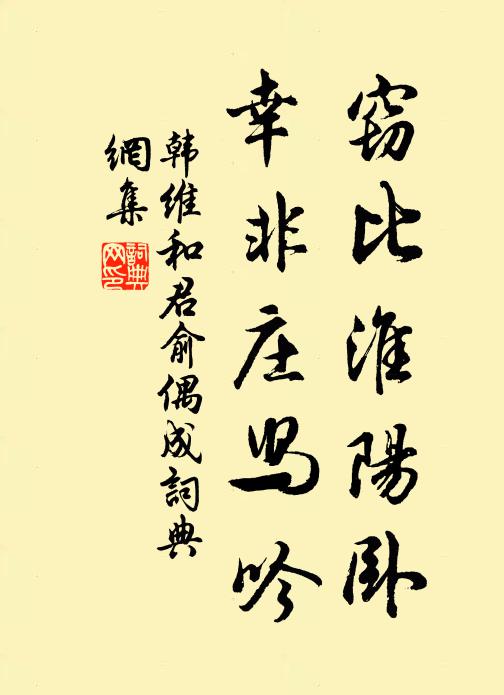 窃比淮陽卧
幸非庄舄吟
韩维和君俞偶成詞典
網集
詞典網印